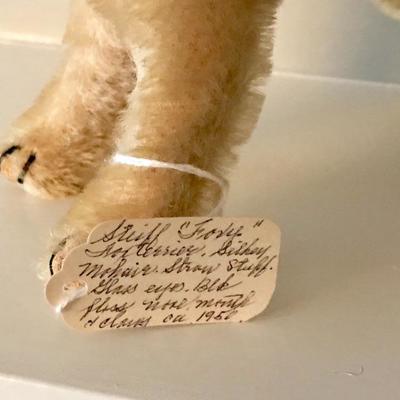 Steiff "Foxy"
Fox terrier. Silky
Mohair. Straw Stuff.
Glass eyes. Blk
floss nose, mouth
& claws ca 1950.